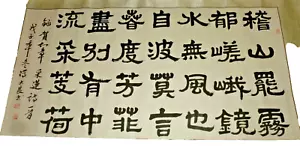 稽山罷霧
郁嵯峨鏡
水無風也
自波莫言
春度芳菲
盡別有中
流采芰荷
賀知章采蓮詩一首
戊子年冬